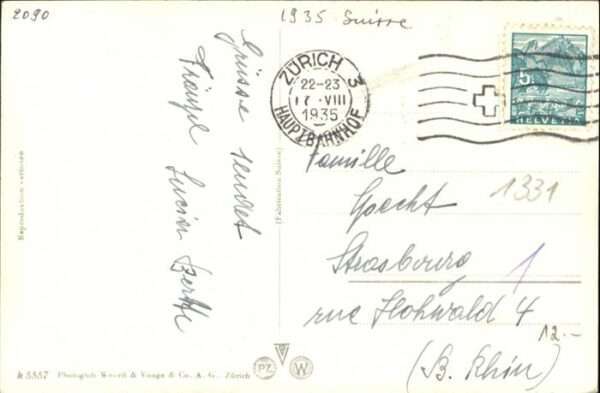 2090
1935 Suisse
ZÜRICH 3
22-23
17.VIII
1935
HAUPTBAHNHOF
5
HELVETIA
Grüsse sendet
Lucien
Famille
Specht
Strasbourg
rue Hohwald 4
(B. Rhin)
1331
1
12.-
Reproduction
(Fabrication Suisse)
k 5557 Photogloh & Co. A. G., Zürich
PZ
W